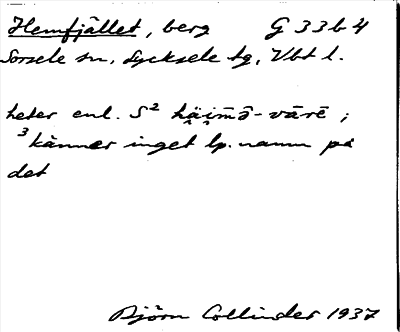 Hemfjället, berg G 33b4
Sorsele sn, Lycksele tg, Vbt l.
heter enl. S² hä̭i̭mō̄-vārē ;
³känner inget lp. namn på
det
Björn Collinder 1937